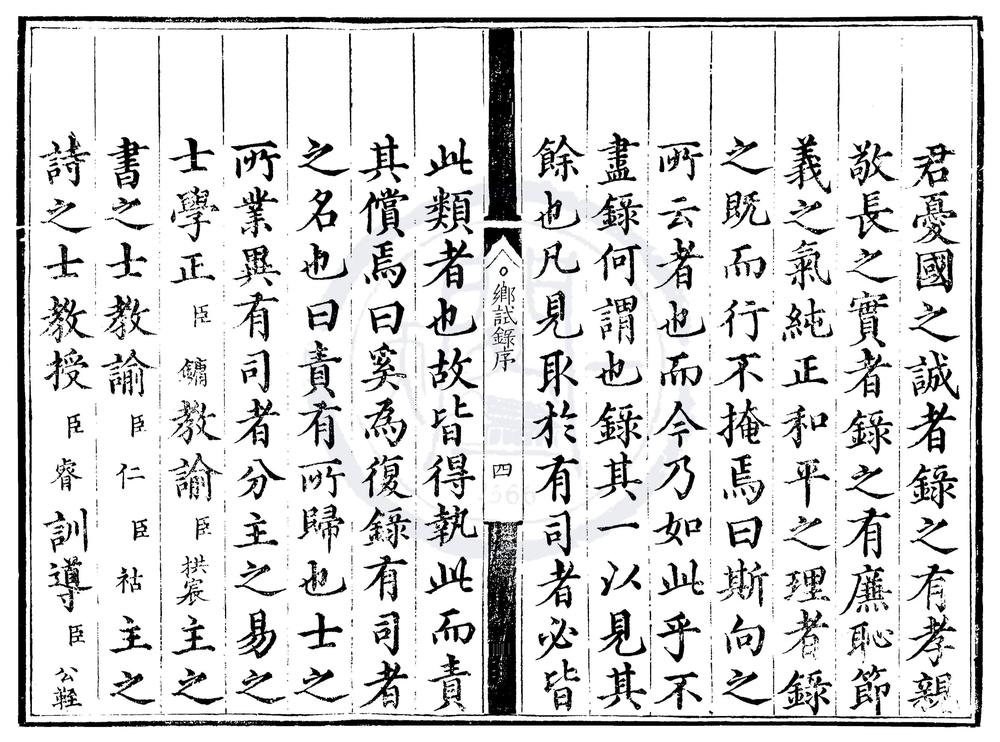 君憂國之誠者錄之有孝親
敬長之實者錄之有廉恥節
義之氣純正和平之理者錄
之既而行不掩焉曰斯向之
所云者也而今乃如此乎不
盡錄何謂也錄其一以見其
餘也凡見取於有司者必皆
鄉試錄序
四
此類者也故皆得執此而責
其償焉曰奚為復錄有司者
之名也曰責有所歸也士之
所業異有司者分主之易之
士學正臣鏞教諭臣拱宸主之
書之士教諭臣仁臣祜主之
詩之士教授臣睿訓導臣公輊